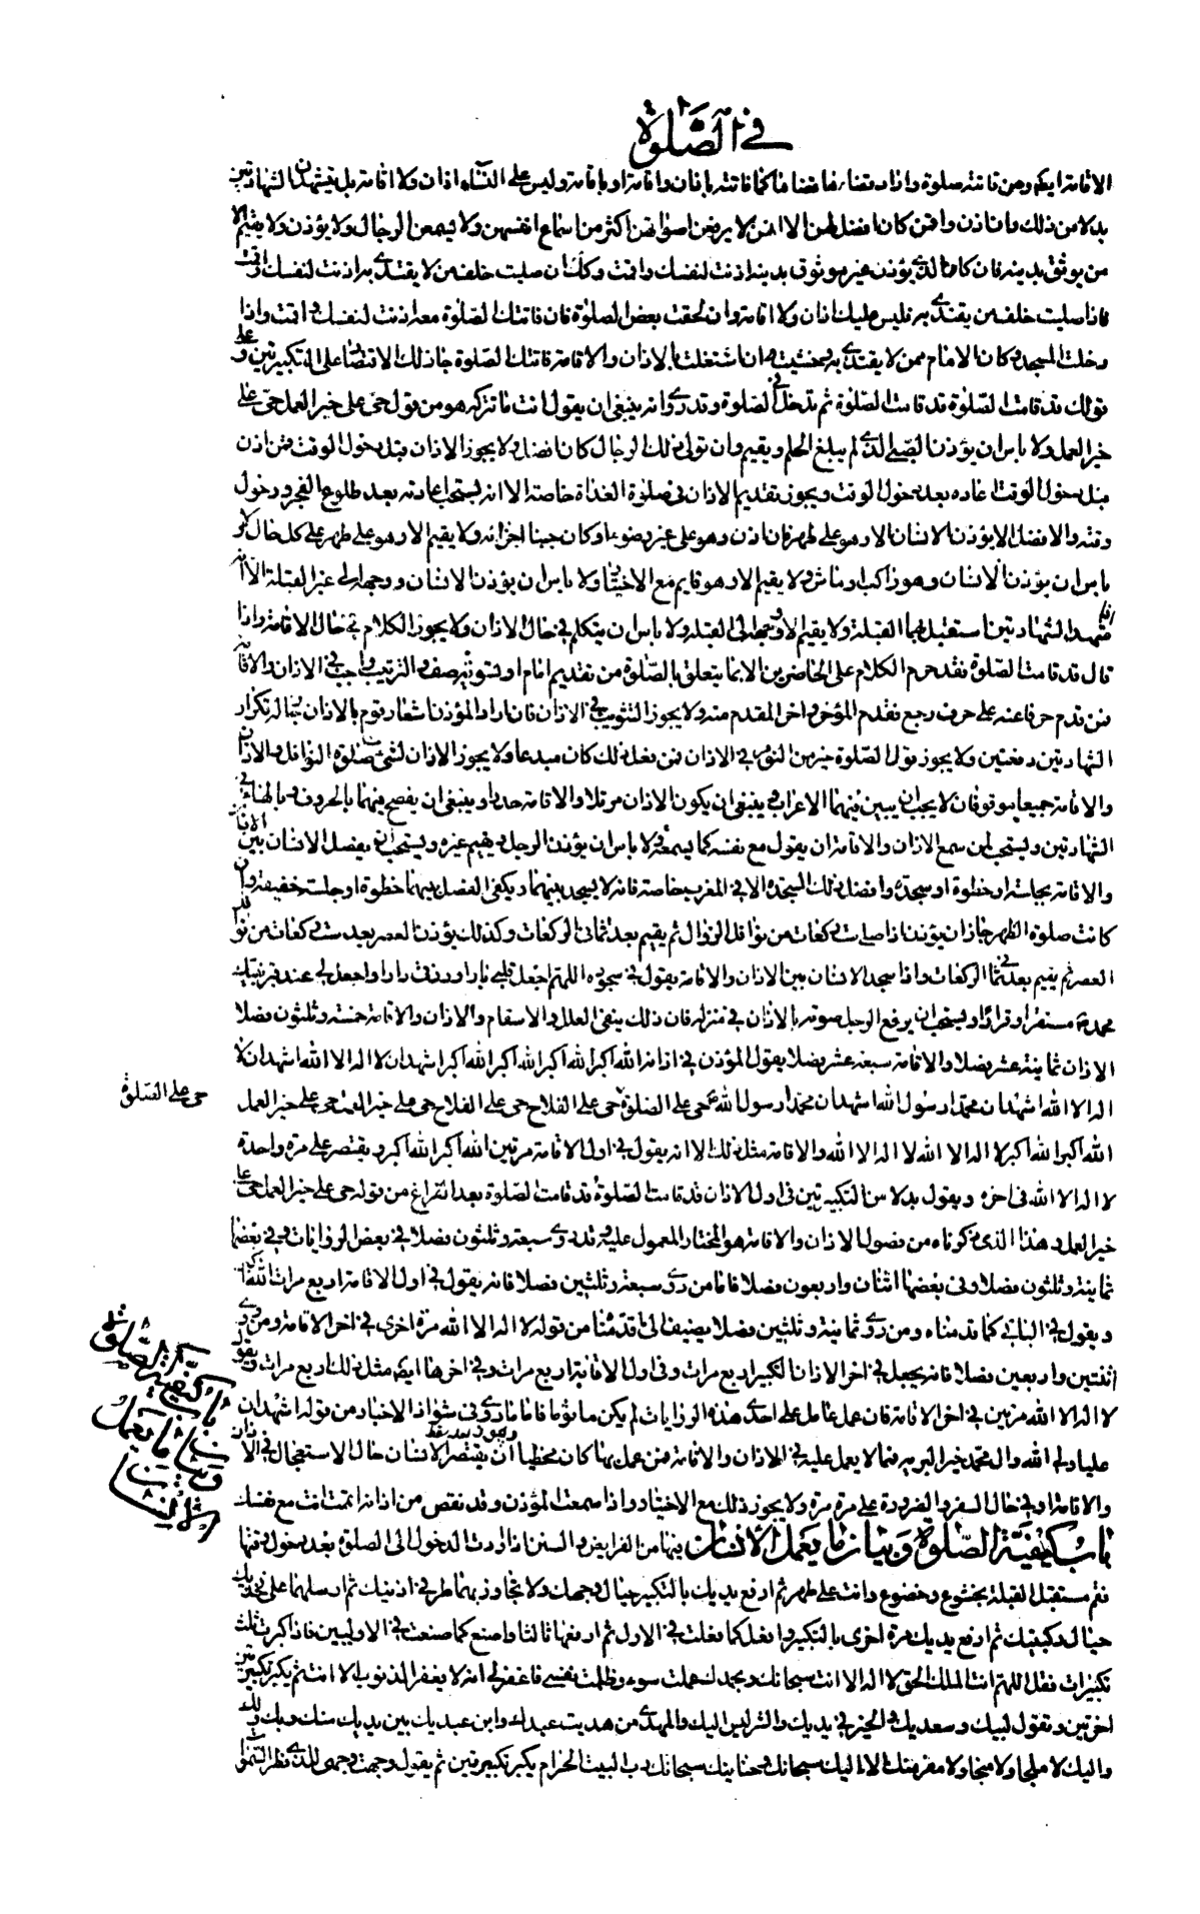 في الصلوة
الاقامة ايضا ومن فاتته صلوة واراد قضاءها قضاها كما فاتته باذان واقامة او باقامة وليس على النساء اذان ولا اقامة بل يتشهدن الشهادتين
بدلا من ذلك وان اذن واقمن كان افضل لهن الا انهن لا يرفعن اصواتهن اكثر من اسماع انفسهن ولا يسمعن الرجال ولا يؤذن ولا يقيم الا
من يوثق بدينه فان كان الذي يؤذن غير موثوق بدينه اذنت لنفسك واقمت وكذلك ان صليت خلف من لا يقتدى به اذنت لنفسك واقمت
فاذا صليت خلف من يقتدى به فليس عليك اذان ولا اقامة وان لحقت بعض الصلوة فان فاتتك الصلوة معه اذنت لنفسك واقمت واذا
دخلت المسجد وكان الامام ممن لا يقتدى به وخشيت ان اشتغلت بالاذان والاقامة فاتتك الصلوة جاز لك الاقتصار على التكبيرتين وعلى
قولك قد قامت الصلوة قد قامت الصلوة ثم تدخل في الصلوة وقد روي انه ينبغي ان يقول انت ما تركه هو من قول حي على خير العمل حي على
خير العمل ولا باس ان يؤذن الصبي الذي لم يبلغ الحلم ويقيم وان تولى ذلك الرجال كان افضل ولا يجوز الاذان قبل دخول الوقت فمن اذن
قبل دخول الوقت اعاده بعد دخول الوقت ويجوز تقديم الاذان في صلوة الغداة خاصة الا انه يستحب اعادته بعد طلوع الفجر ودخول
وقته والافضل الا يؤذن الانسان الا وهو على طهر فان اذن وهو على غير وضوء او كان جنبا اجزائه ولا يقيم الا وهو على طهر على كل حال ولا
باس ان يؤذن الانسان وهو راكب او ماش ولا يقيم الا وهو قايم مع الاختيار ولا باس ان يؤذن الانسان ووجهه الى غير القبلة الا انه
اذا تشهد الشهادتين استقبل بهما القبلة ولا يقيم الا ووجهه الى القبلة ولا باس ان يتكلم في حال الاذان ولا يجوز الكلام في حال الاقامة واذا
قال قد قامت الصلوة فقد حرم الكلام على الحاضرين الا بما يتعلق بالصلوة من تقديم امام او تسوية صف والترتيب واجب في الاذان والاقامة
فمن قدم حرفا عنه على حرف رجع فقدم المؤخر واخر المقدم منه ولا يجوز التثويب في الاذان فان اراد المؤذن اشعار قوم بالاذان جاز له تكرار
الشهادتين دفعتين ولا يجوز قول الصلوة خير من النوم في الاذان فمن فعل ذلك كان مبدعا ولا يجوز الاذان لشيء من صلوة النوافل والاذان
والاقامة جميعا موقوفان لا يجب ان يبين فيهما الاعراب وينبغي ان يكون الاذان مرتلا والاقامة حدرا وينبغي ان يفصح فيهما بالحروف وبالهاء في
الشهادتين ويستحب لمن سمع الاذان والاقامة ان يقول مع نفسه كما يسمعه ولا باس ان يؤذن الرجل ويقيم غيره ويستحب ان يفصل الانسان بين الاذان
والاقامة بجلسة او خطوة او سجدة وافضل ذلك السجدة الا في المغرب خاصة فانه لا يسجد بينهما ويكفي الفصل بينهما خطوة او جلسة خفيفة وان
كانت صلوة الظهر جاز ان يؤذن اذا صليت ست ركعات من نوافل الزوال ثم يقيم بعد ثماني الركعات وكذلك يؤذن العصر بعد ست ركعات من نوافل
العصر ثم يقيم بعد ثماني الركعات واذا سجد الانسان بين الاذان والاقامة يقول في سجوده اللهم اجعل قلبي بارا ورزقي دارا واجعل لي عند قبر نبيك
محمد ص مستقرا وقرارا ويستحب ان يرفع الرجل صوته بالاذان في منزله فان ذلك ينفي العلل والاسقام والاذان والاقامة خمسة وثلثون فصلا
الاذان ثمانية عشر فصلا والاقامة سبعة عشر فصلا يقول المؤذن في اذانه الله اكبر الله اكبر الله اكبر الله اكبر اشهد ان لا اله الا الله اشهد ان لا
اله الا الله اشهد ان محمدا رسول الله اشهد ان محمدا رسول الله حي على الصلوة حي على الفلاح حي على الفلاح حي على خير العمل حي على خير العمل
حي على الصلوة
الله اكبر الله اكبر لا اله الا الله لا اله الا الله والاقامة مثل ذلك الا انه يقول في اول الاقامة مرتين الله اكبر الله اكبر ويقتصر على مرة واحدة
لا اله الا الله في اخره ويقول بدلا من التكبيرتين في اول الاذان قد قامت الصلوة قد قامت الصلوة بعد الفراغ من قوله حي على خير العمل حي على
خير العمل وهذا الذي ذكرناه من فصول الاذان والاقامة هو المختار المعمول عليه وقد روي سبعة وثلثون فصلا في بعض الروايات وفي بعضها
ثمانية وثلثون فصلا وفي بعضها اثنان واربعون فصلا فاما من روى سبعة وثلثين فصلا فانه يقول في اول الاقامة اربع مرات الله اكبر
ويقول في الباقي كما قدمناه ومن روى ثمانية وثلثين فصلا يضيف الى ما قدمنا من قوله لا اله الا الله مرة اخرى في اخر الاقامة ومن روى
اثنتين واربعين فصلا فانه يجعل في اخر الاذان التكبير اربع مرات وفي اول الاقامة اربع مرات وفي اخرها ايضا مثل ذلك اربع مرات ويقول
لا اله الا الله مرتين في اخر الاقامة فان عمل عامل على احدى هذه الروايات لم يكن ماثوما فاما ما روي في شواذ الاخبار من قوله اشهد ان
عليا ولي الله وال محمد خير البرية فمما لا يعمل عليه في الاذان والاقامة فمن عمل بها كان مخطيا ان يقتصر الانسان حال الاستعجال في الاذان
والاقامة او في حال السفر والضرورة على مرة مرة ولا يجوز ذلك مع الاختيار واذا سمعت المؤذن وقد نقص من اذانه اتممت انت مع نفسك
باب كيفية الصلوة وبيان ما يعمل الانسان فيها من الفرايض والسنن اذا اردت الدخول الى الصلوة بعد دخول وقتها
باب كيفية الصلوة وبيان ما يعمل الانسان
فقم مستقبل القبلة بخشوع وخضوع وانت على طهر ثم ارفع يديك بالتكبير حيال وجهك ولا تجاوز بهما طرفي اذنيك ثم ارسلهما على فخذيك
حيال ركبتيك ثم ارفع يديك مرة اخرى بالتكبير وافعل كما فعلت في الاول ثم ارفعها ثالثا واصنع كما صنعت في الاوليين فاذا كبرت ثلث
تكبيرات فقل اللهم انت الملك الحق لا اله الا انت سبحانك وبحمدك عملت سوء وظلمت نفسي فاغفر لي انه لا يغفر الذنوب الا انت ثم يكبر تكبيرتين
اخرتين وتقول لبيك وسعديك والخير في يديك والشر ليس اليك والمهدي من هديت عبدك وابن عبديك بين يديك منك وبك ولك
واليك لا ملجا ولا منجا ولا مفر منك الا اليك سبحانك وحنانيك سبحانك رب البيت الحرام يكبر تكبيرتين ثم يقول وجهت وجهي للذي فطر السموات